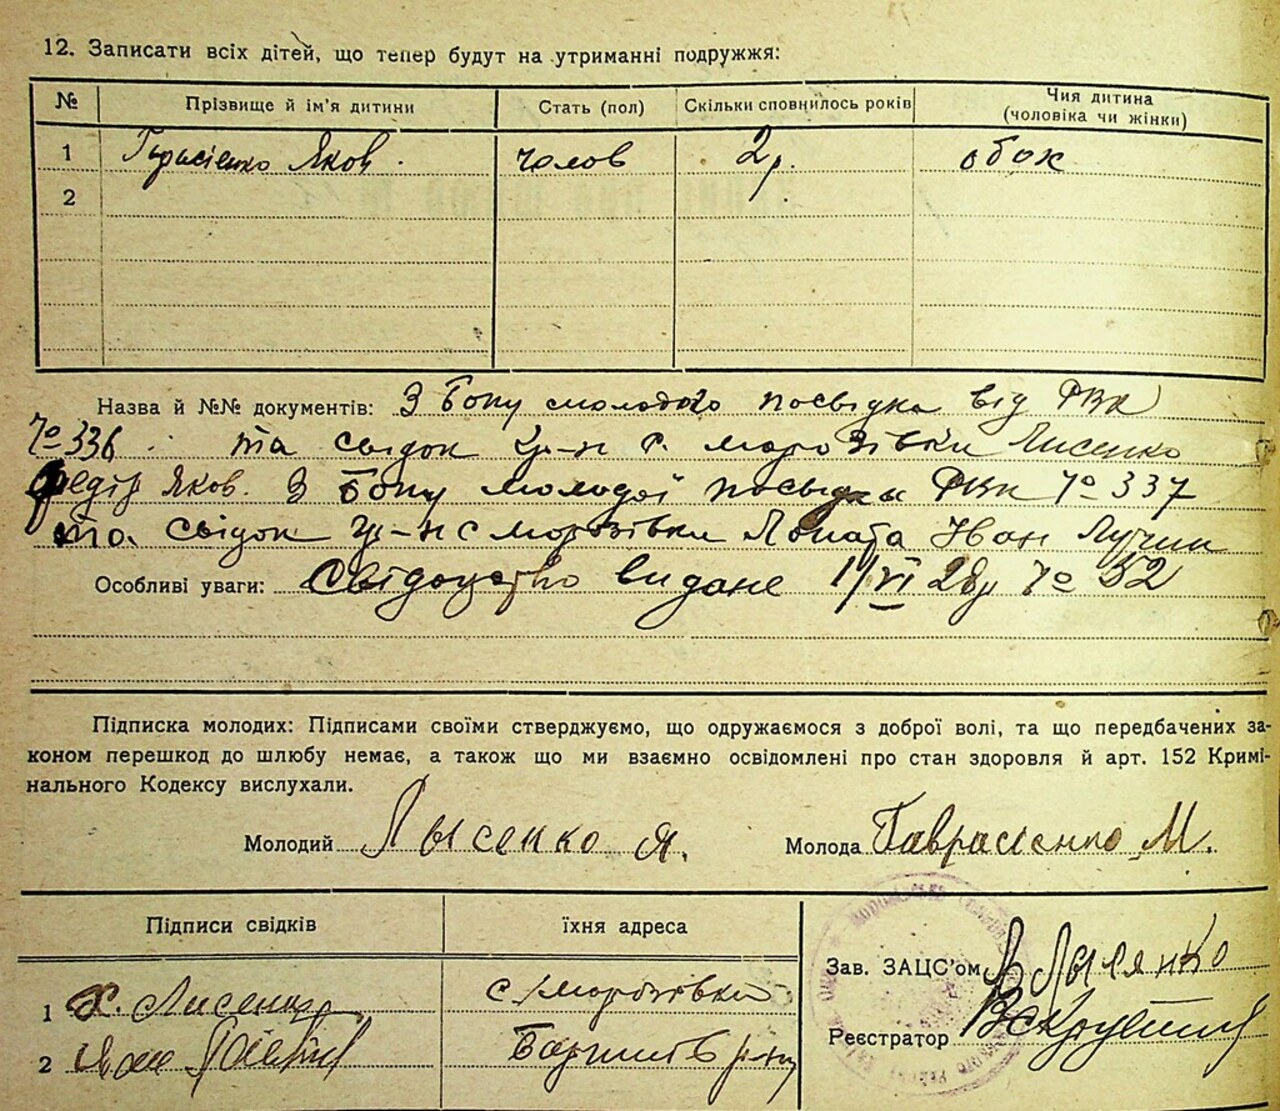 12. Записати всіх дітей, що тепер будут на утриманні подружжя:
№ Прізвище й ім'я дитини Стать (пол) Скільки сповнилось років Чия дитина (чоловіка чи жінки)
1 Яков. чолов 2 р. обох
2
Назва й №№ документів: З боку молодого посвідка від РВК
№ 336 та свідок гр-н с. Морозівки Лисенко
Федір Яков. З боку молодої посвідка РВК № 337
та свідок гр-н с Морозівки Лопата Іван
Особливі уваги: Свідоцтво видане 1/VI 28р № 52
Підписка молодих: Підписами своїми стверджуємо, що одружаємося з доброї волі, та що передбачених за-
коном перешкод до шлюбу немає, а також що ми взаємно освідомлені про стан здоровля й арт. 152 Кримі-
нального Кодексу вислухали.
Молодий Лысенко Я. Молода Гаврасіенко М.
Підписи свідків їхня адреса
Зав. ЗАЦС'ом
1 Лисенко с Морозівки
Реєстратор
2